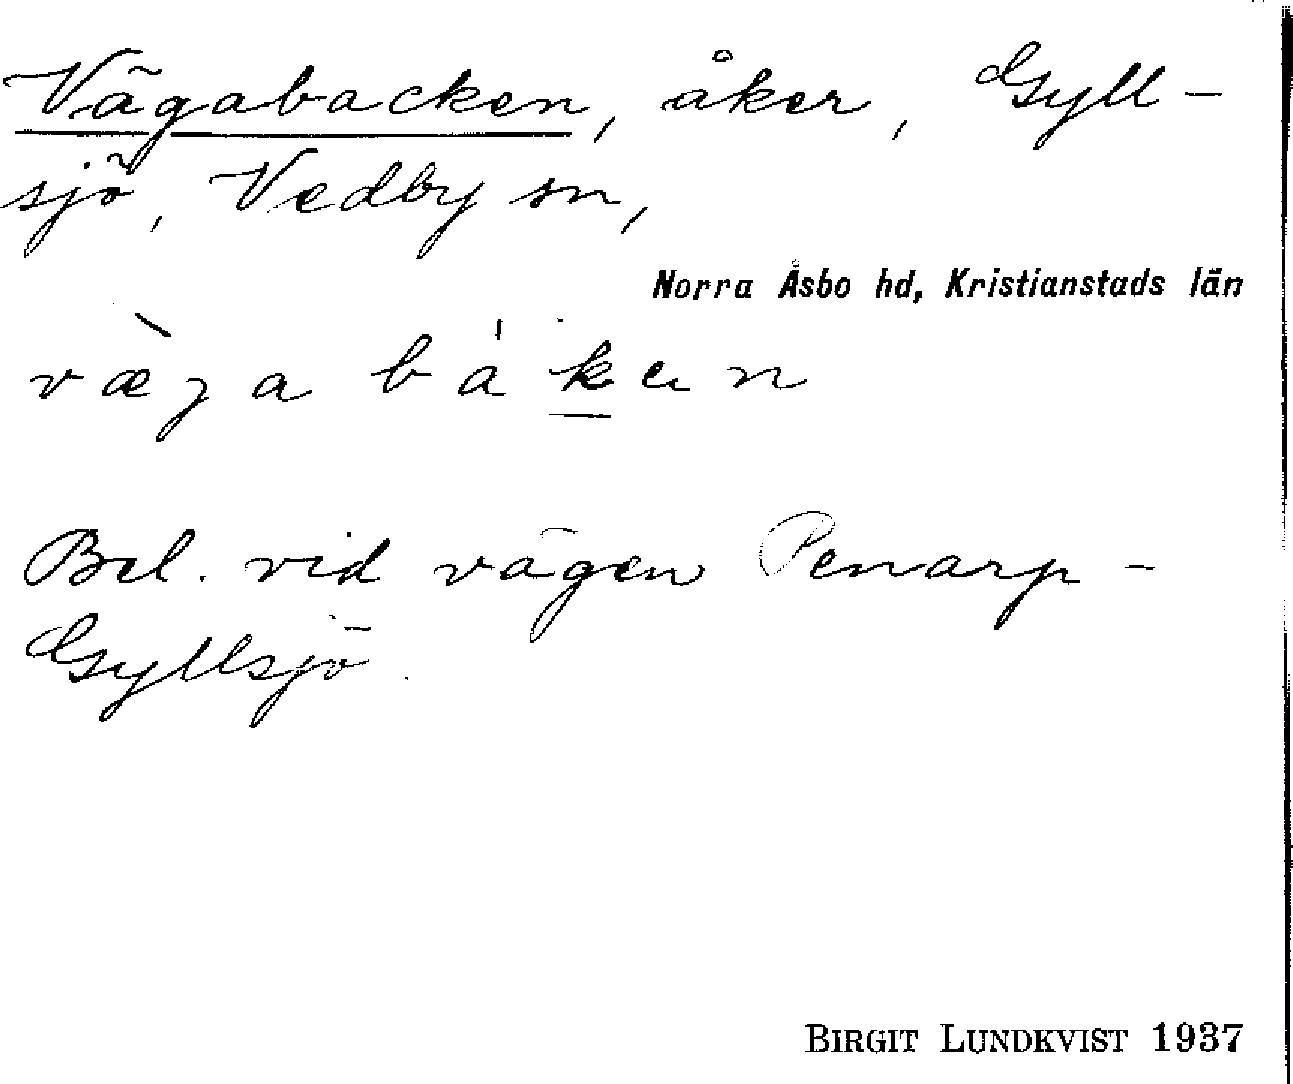 Vägabacken, åker, Gyll-
sjö, Vedby sn,
Norra Åsbo hd, Kristianstads län
væ̀ga bákan
Bel. vid vägen Penarp-
Gyllsjö.
BIRGIT LUNDKVIST 1937